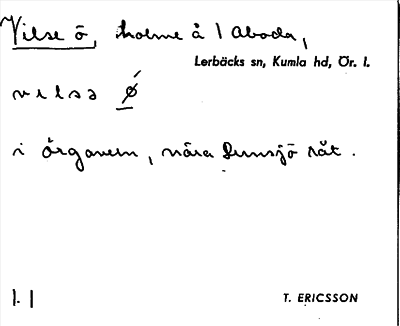 Vilse ö, holme å 1 Aboda,
Lerbäcks sn, Kumla hd, Ör. l.
vilsə ǿ̲
i Örgaven, nära Sunsjö råt.
1. 1
T. ERICSSON